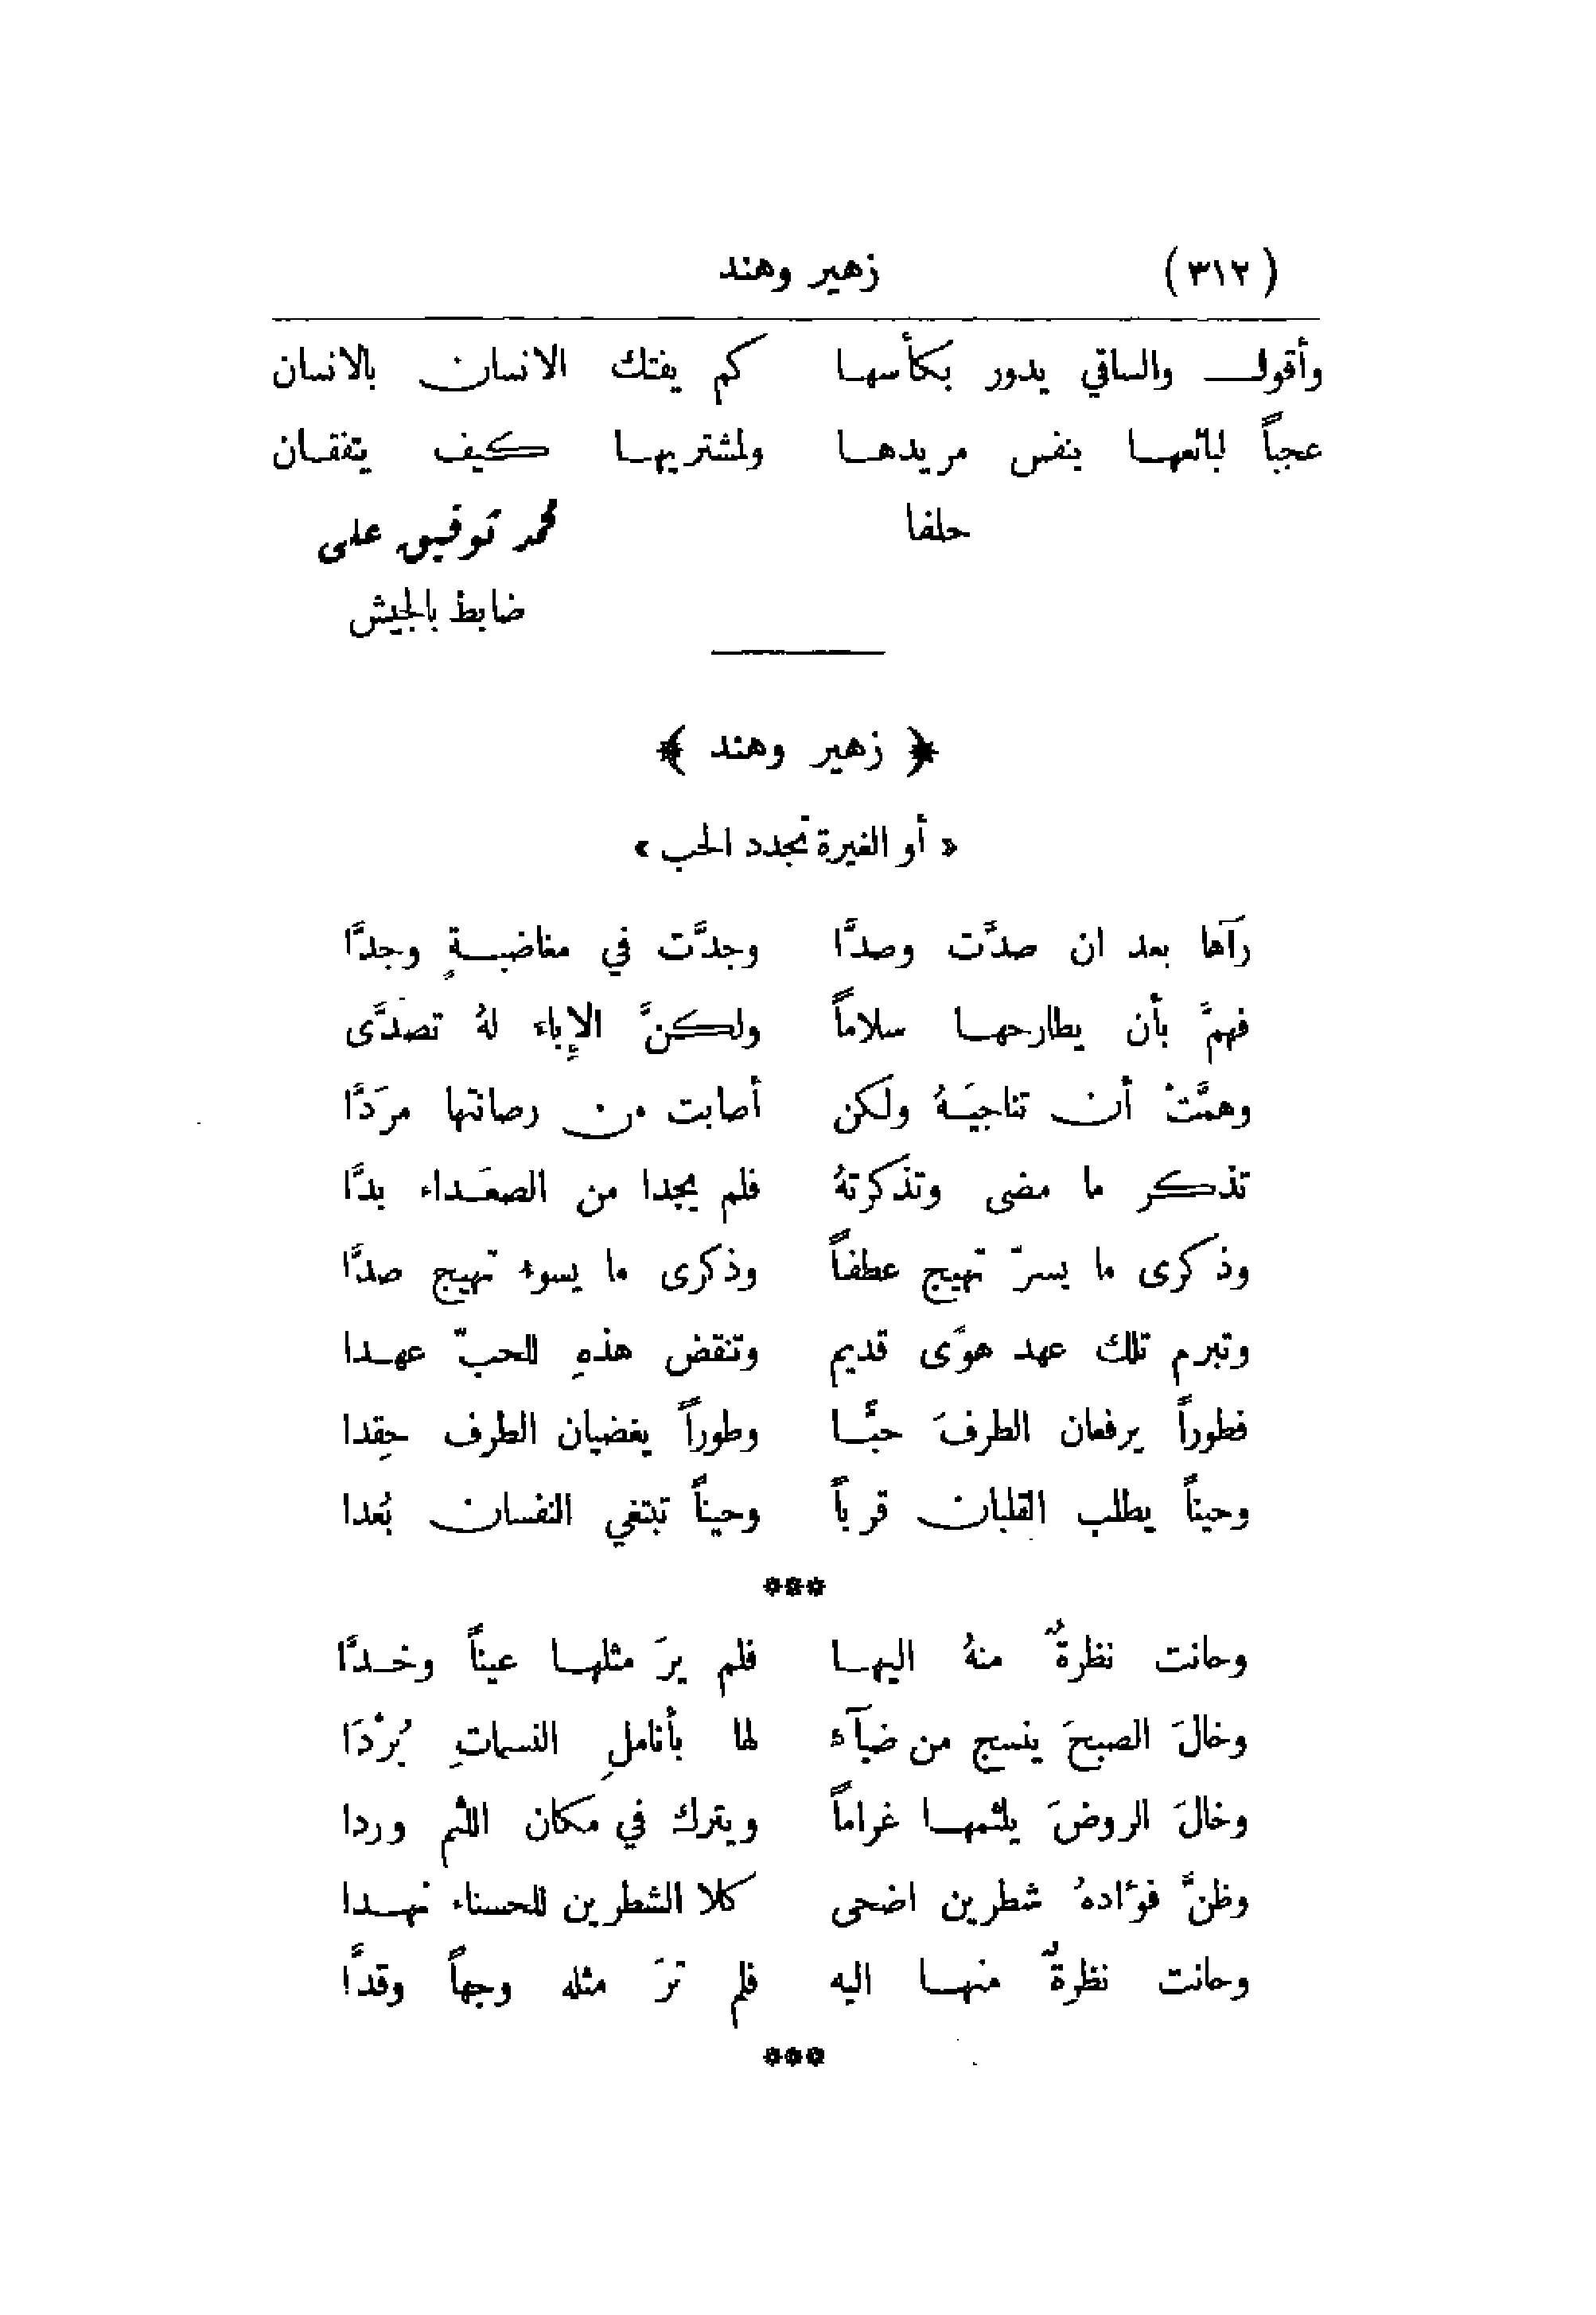 (٣١٢) زهير وهند
وأقول والساقي يدور بكأسها كم يفتك الانسان بالانسان
عجباً لبائعها بنفس مريدها ولمشتريها كيف يتفقان
حلفا محمد توفيق على
ضابط بالجيش
﴿ زهير وهند ﴾
« أو الغيرة تجدد الحب »
رآها بعد ان صدَّت وصدَّا وجدَّت في مغاضبةٍ وجدَّا
فهمَّ بأن يطارحها سلاماً ولكنَّ الإِباء لهُ تصدَّى
وهمَّتْ أن تناجيَهُ ولكن أصابت من رصانتها مرَدَّا
تذكر ما مضى وتذكرتهُ فلم يجدا من الصعَداء بدَّا
وذكرى ما يسرّ تهيج عطفاً وذكرى ما يسوء تهيج صدَّا
وتبرم تلك عهد هوًى قديم وتنقض هذهِ للحبّ عهدا
فطوراً يرفعان الطرفَ حبًّا وطوراً يغضيان الطرف حِقدا
وحيناً يطلب القلبان قرباً وحيناً تبتغي النفسان بُعدا
***
وحانت نظرةٌ منهُ اليها فلم يرَ مثلها عيناً وخدًّا
وخالَ الصبحَ ينسج من ضيآء لها بأناملِ النسماتِ بُرْدَا
وخالَ الروضَ يلثمها غراماً ويترك في مكان اللثم وردا
وظنَّ فؤادهُ شطرين اضحى كلا الشطرين للحسناء نهدا
وحانت نظرةٌ منها اليه فلم ترَ مثله وجهاً وقدًّا
***